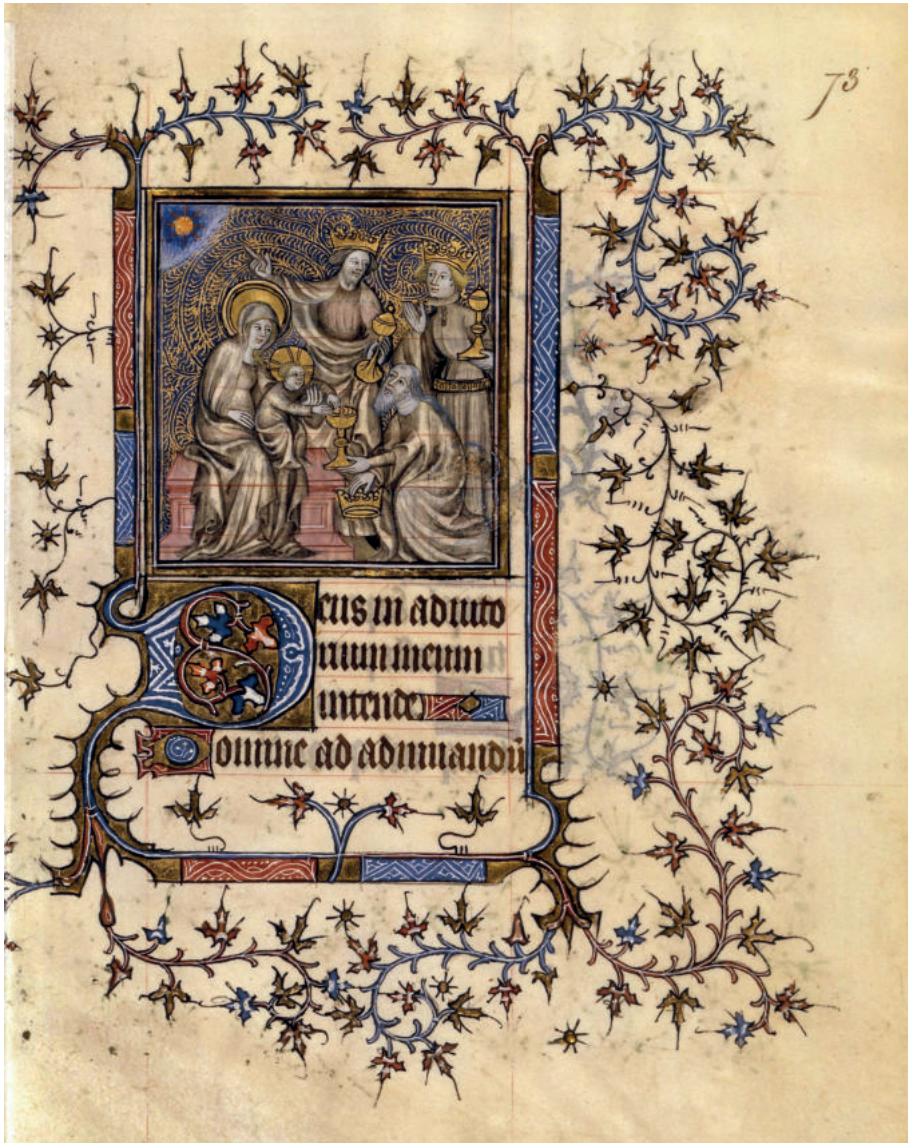 73
Deus in adiuto
rium meum
intende
Domine ad adiuuandū